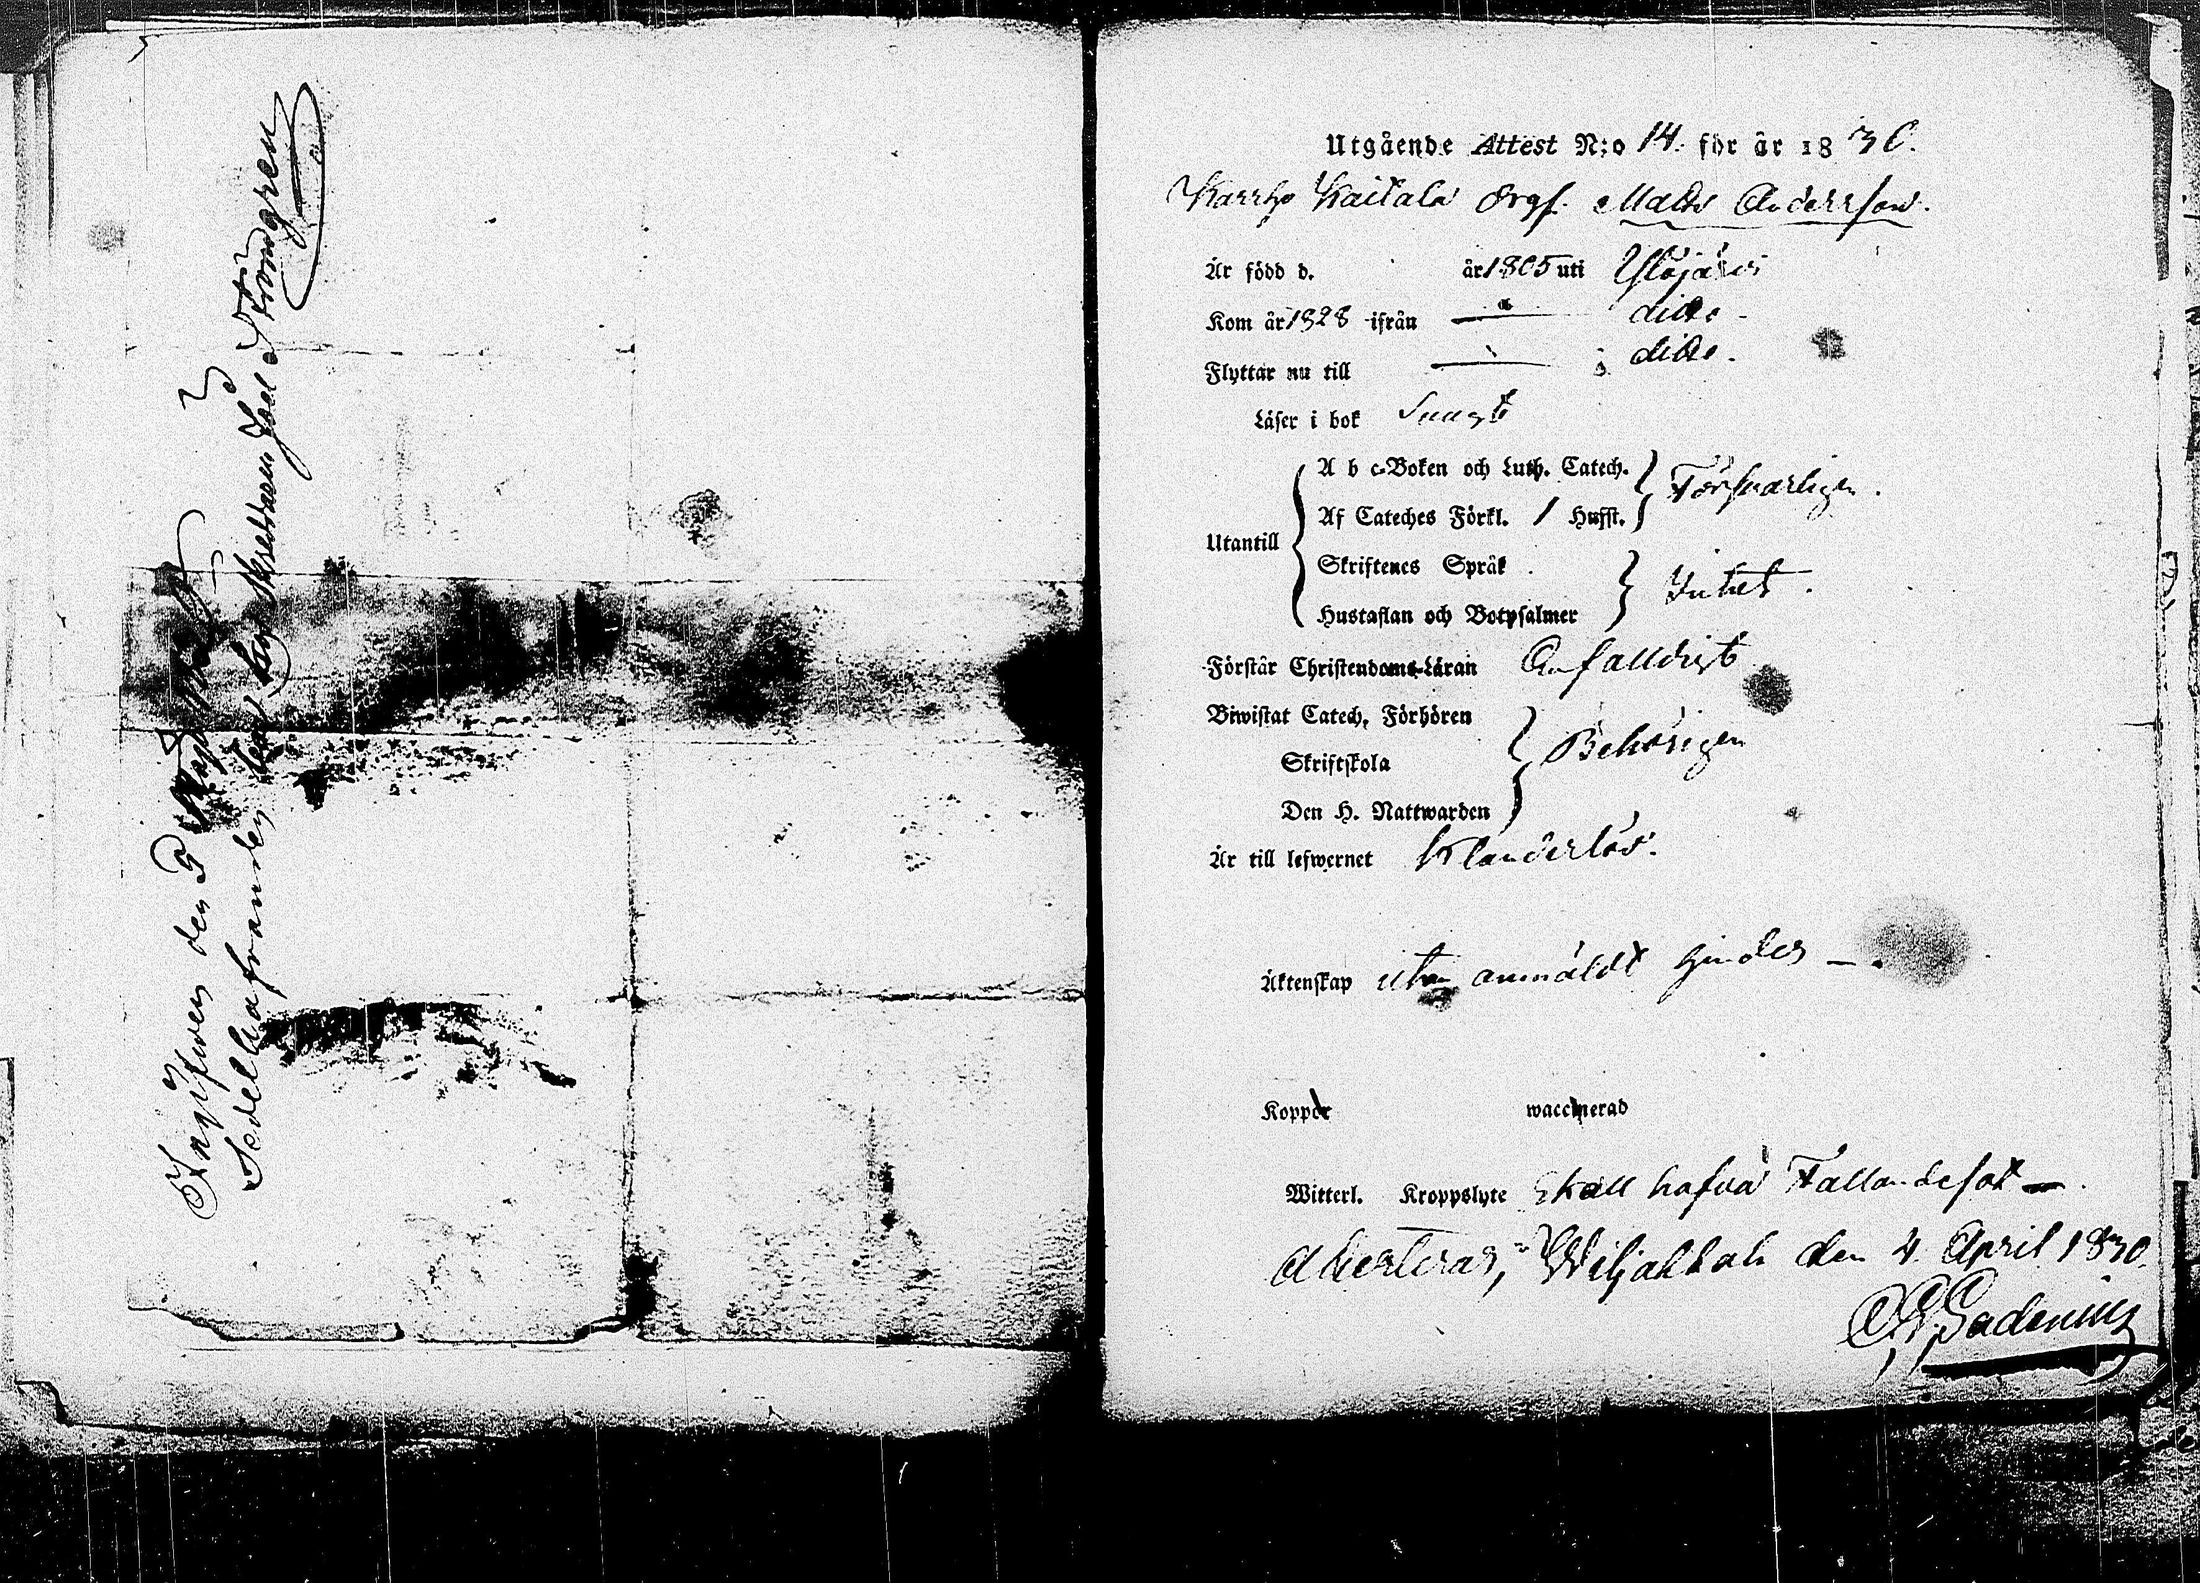 Ingifwen den 5
Sedelhafvanden Joel Strömgren
Utgående Attest N:o 14. för år 1830.
Karrho Kaitala drgs. Matts Andersson.
Är född d. år 1805 uti Ylöjärvi
Kom år 1828 ifrån — " — ditto -
Flyttar nu till — " — ditto.
Läser i bok Svagt
A b c-Boken och Luth. Catech.
Af Cateches Förkl. / Husst. Försvarligen.
Utantill
Skriftenes Språk
Hustaflan och Botpsalmer Intet.
Förstår Christendoms-Läran Enfalldigt
Biwistat Catech. Förhören
Skriftskola Behörigen
Den H. Nattwarden
Är till lefwernet Klanderlös.
Äktenskap utan anmäldt hinder —.
Koppor waccinerad
Witterl. Kroppslyte Skall hafva Fallandesot —.
Attesteras, Wiljakkala den 4 April 1830.
Gadenius